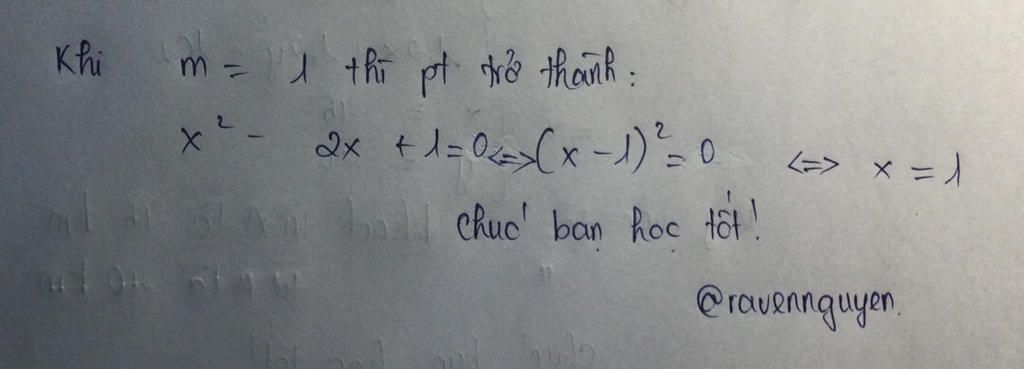 Khi m = 1 thì pt trở thành:
x² - 2x + 1 = 0 <=> (x - 1)² = 0 <=> x = 1
Chúc bạn học tốt!
@ravennguyen.